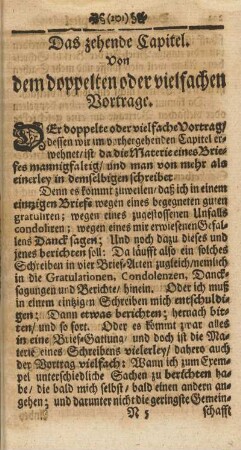 (201)
Das zehende Capitel.
Von
dem doppelten oder vielfachen
Vortrage.
DEr doppelte oder vielfache Vortrag/
dessen wir im vorhergehenden Capitel er-
wehnet/ ist da die Materie eines Brie-
fes mannigfaltig/ und man von mehr als
einerley in demselbigen schreibet.
Denn es kommt zuweilen/ daß ich in einem
einzigen Briefe wegen eines begegneten guten
gratuliren; wegen eines zugestossenen Unfalls
condoliren; wegen eines mir erwiesenen Gefal-
lens Danck sagen; Und noch dazu dieses und
jenes berichten soll: Da läufft also ein solches
Schreiben in vier Brief-Arten zugleich/ nemlich
in die Gratulationen, Condolenzen, Danck-
sagungen und Berichte/ hinein. Oder ich muß
in einem einzigen Schreiben mich entschuldi-
gen; Dann etwas berichten; hernach bit-
ten/ und so fort. Oder es kommt zwar alles
in eine Brief-Gattung/ und doch ist die Ma-
terie eines Schreibens vielerley/ dahero auch
der Vortrag vielfach: Wann ich zum Exem-
pel unterschiedliche Sachen zu berichten ha-
be/ die bald mich selbst/ bald einen andern an-
gehen; und darunter nicht die geringste Gemein-
N 5 schafft